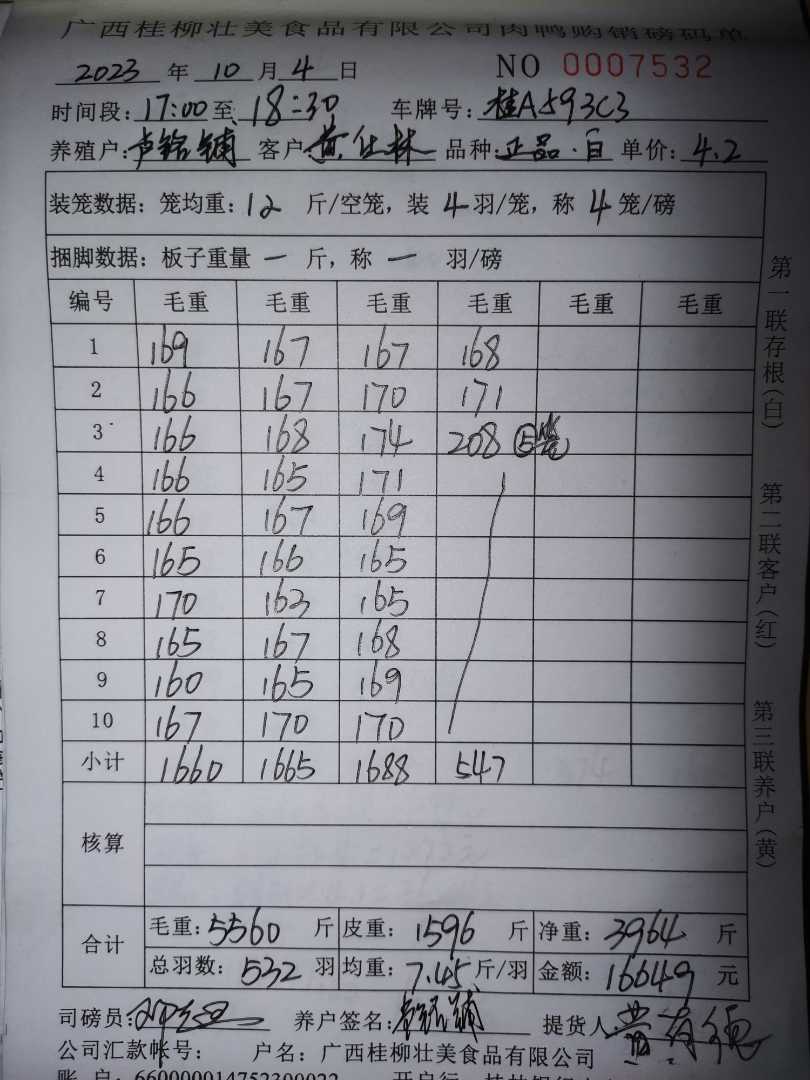 广西桂柳壮美食品有限公司肉鸭购销磅码单
2023 年 10 月 4 日 NO 0007532
时间段: 17:00 至 18:30 车牌号: 桂A593C3
养殖户: 卢铭铺 客户: 黄仕林 品种: 正品·白 单价: 4.2
装笼数据: 笼均重: 12 斤/空笼, 装 4 羽/笼, 称 4 笼/磅
捆脚数据: 板子重量 一 斤, 称 一 羽/磅
编号 毛重 毛重 毛重 毛重 毛重 毛重
1 169 167 167 168
2 166 167 170 171
3 166 168 174 208 ⑤笼
4 166 165 171
5 166 167 169
6 165 166 165
7 170 163 165
8 165 167 168
9 160 165 169
10 167 170 170
小计 1660 1665 1688 547
核算
合计
毛重: 5560 斤 皮重: 1596 斤 净重: 3964 斤
总羽数: 532 羽 均重: 7.45 斤/羽 金额: 16649 元
司磅员: 养户签名: 提货人:
公司汇款帐号: 户名: 广西桂柳壮美食品有限公司
第一联存根(白)
第二联客户(红)
第三联养户(黄)